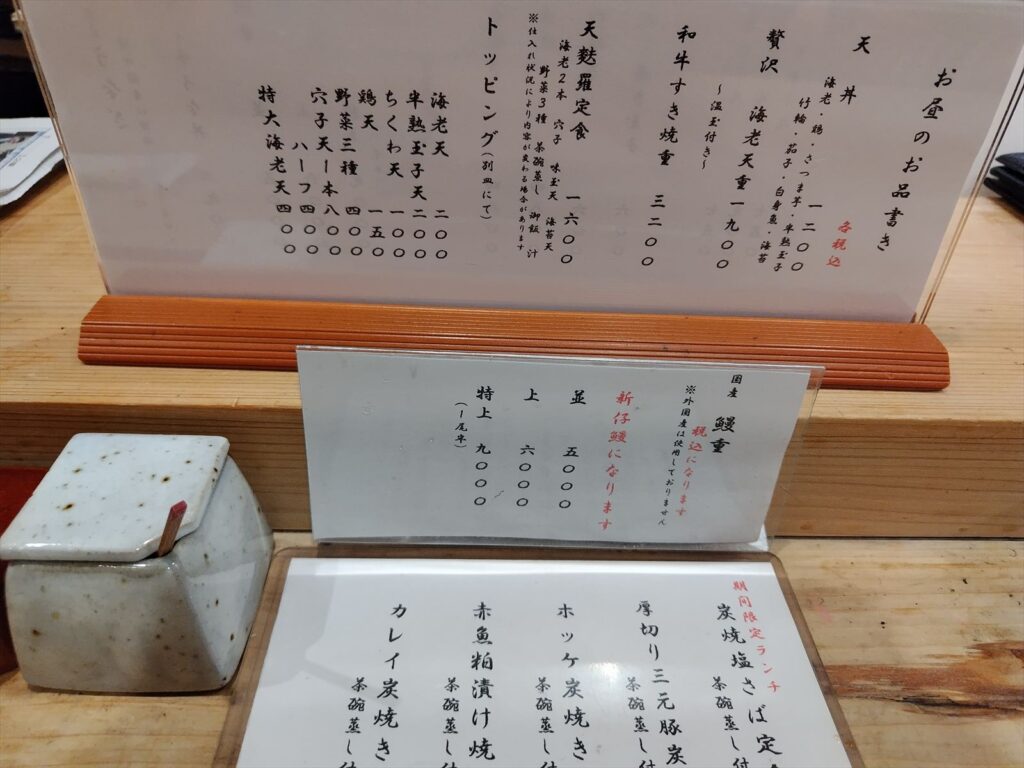 お昼のお品書き
各税込
天丼 一二〇〇
海老・鶏・さつま芋・半熟玉子
竹輪・茄子・白身魚・海苔
贅沢 海老天重 一九〇〇
〜温玉付き〜
和牛すき焼重 三二〇〇
天麩羅定食 一六〇〇
海老2本 穴子 味玉天 海苔天
野菜3種 茶碗蒸し 御飯 汁
※仕入れ状況により内容が変わる場合があります
トッピング(別皿にて)
海老天 二〇〇
半熟玉子天 二〇〇
ちくわ天 一〇〇
鶏天 一五〇
野菜三種 四〇〇
穴子天一本 八〇〇
ハーフ 四〇〇
特大海老天 四〇〇
国産 鰻重
税込になります
※外国産は使用しておりません
新仔鰻になります
並 五〇〇〇
上 六〇〇〇
特上 九〇〇〇
(一尾半)
期間限定ランチ
炭焼塩さば定
茶碗蒸し付
厚切り三元豚炭
茶碗蒸し付
ホッケ炭焼き
茶碗蒸し付
赤魚粕漬け焼
茶碗蒸し付
カレイ炭焼き
茶碗蒸し付